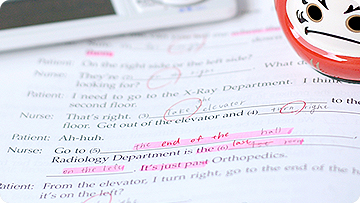 Patient: On the right side or the left side? What
Nurse: They're (2)
looking for?
Patient: I need to go to the X-Ray Department. I think
second floor.
Nurse: That's right. (3) take the elevator (4) turn right
floor. Get out of the elevator and
Patient: Ah-huh.
Nurse: Go to (5) the end of the hall
Radiology Department is the (6) last
on the left. It's just past Orthopedics.
Patient: From the elevator, I turn right, go to the end of the h
it's on the left?